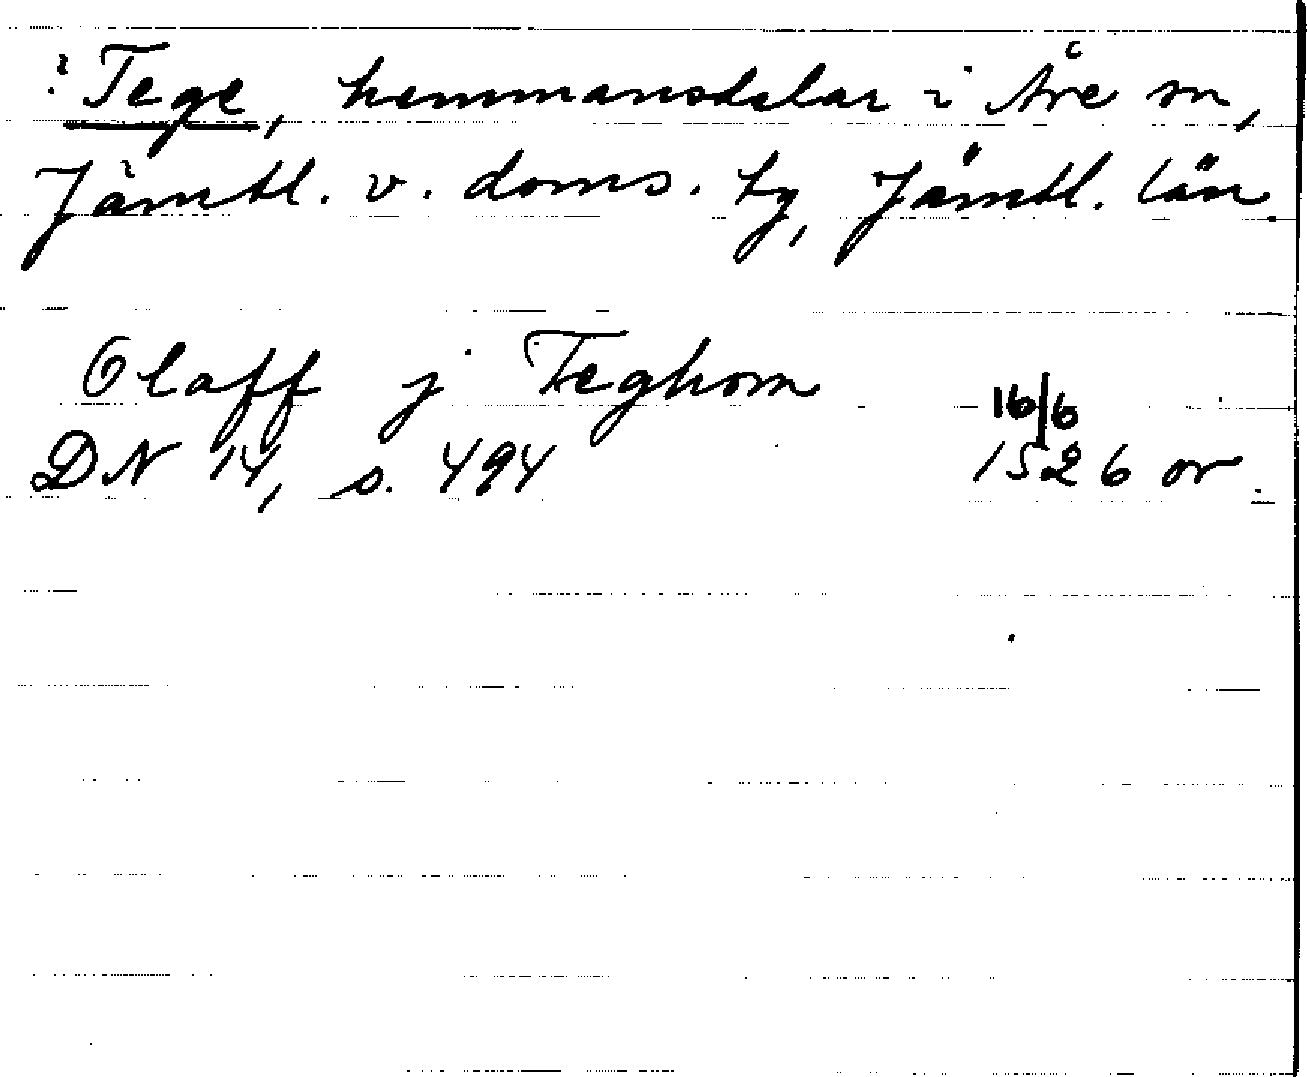 ? Tege, hemmansdelar i Åre sn,
Jämtl. v. doms. tg, Jämtl. län.
Olaff j Teghom 16/6
DN 14, s. 494 1526 or.